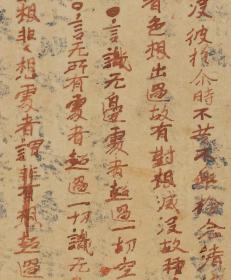 沒彼於尒時不苦不樂捨念清
者色想出過故有對想滅沒故種
〇言識无邊處者超過一切空
〇言无所有處者超過一切識无
想非〻想處者謂非有想超過